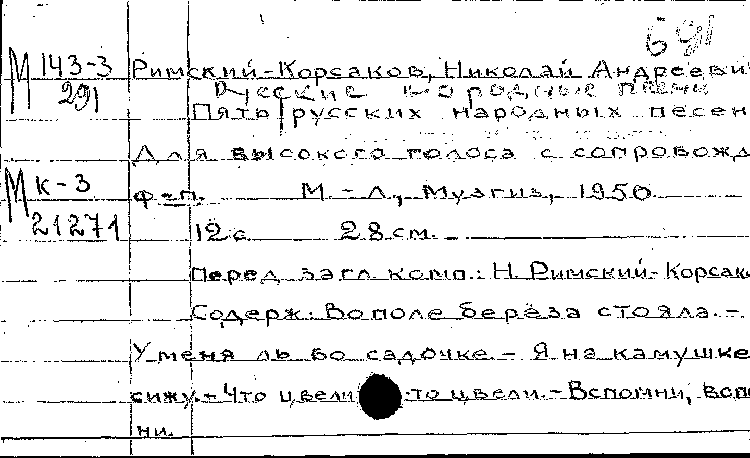 691
М 143-3 Римский-Корсаков, Николай Андреевич
291 Русские народные песни
Пять русских народных песен
Для высокого голоса с сопровожд
М К-3 ф-п. М.-Л., Музгиз, 1950.
21271 12 с. 28 см.
Перед загл. комп.: Н. Римский-Корсак
Содерж: Во поле берёза стояла. -
У меня ль во садочке. - Я на камушке
сижу. - Что цвели то цвели. - Вспомни, всп
ни.